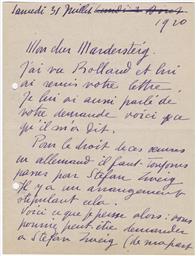 Samedi 31 Juillet Lundi 2 Aout
1920
Mon cher Mardersteig.
J'ai vu Rolland et lui
ai remis votre lettre.
Je lui ai aussi parlé de
votre demande voici ce
qu'il m'a dit.
Pour le droit de ces œuvres
en allemand il faut toujours
passer par Stefan Zweig
Il y a un arrangement
stipulant cela.
Voici ce que je pense alors: vous
pourriez peut-être demander
à Stefan Zweig (de ma part